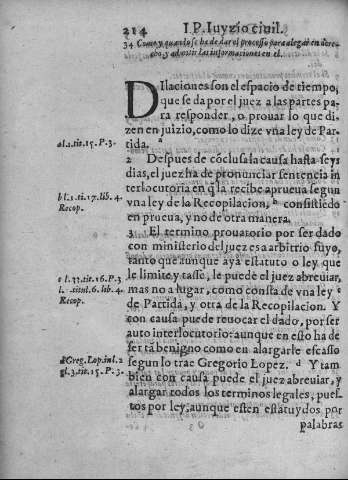 214 I.P. Iuyzio ciuil.
34 Como y quando se ha de dar el processo para alegar en dere-
cho, y admitir las informaciones en el.
DIlaciones son el espacio de tiempo,
que se da por el juez a las partes pa-
ra responder, o prouar lo que di-
zen en juizio, como lo dize vna ley de Par-
tida. a
a l.1. tit. 15. P. 3.
2 Despues de cõclusa la causa hasta seys
dias, el juez ha de pronunciar sentencia in
terlocutoria en q̃ la recibe a prueua segun
vna ley de la Recopilacion, b consistiẽdo
b l.1. tit. 17. lib. 4.
Recop.
en prueua, y no de otra manera.
3 El termino prouatorio por ser dado
con ministerio del juez es a arbitrio suyo,
tanto que aunque aya estatuto o ley que
le limite y tasse, le puede el juez abreuiar,
mas no alugar, como consta de vna ley c
c l. 33. tit. 16. P. 3
l. tit. 6. lib. 4.
Recop.
de Partida, y otra de la Recopilacion. Y
con causa puede reuocar el dado, por ser
auto interlocutorio: aunque en esto ha de
ser tã benigno como en alargarle escasso
segun lo trae Gregorio Lopez. d Y tam
d Greg. Lop. in l. 2
gl. 3. tit. 15. P. 3.
bien con causa puede el juez abreuiar, y
alargar todos los terminos legales, pues-
tos por ley, aunque esten estatuydos por
palabras